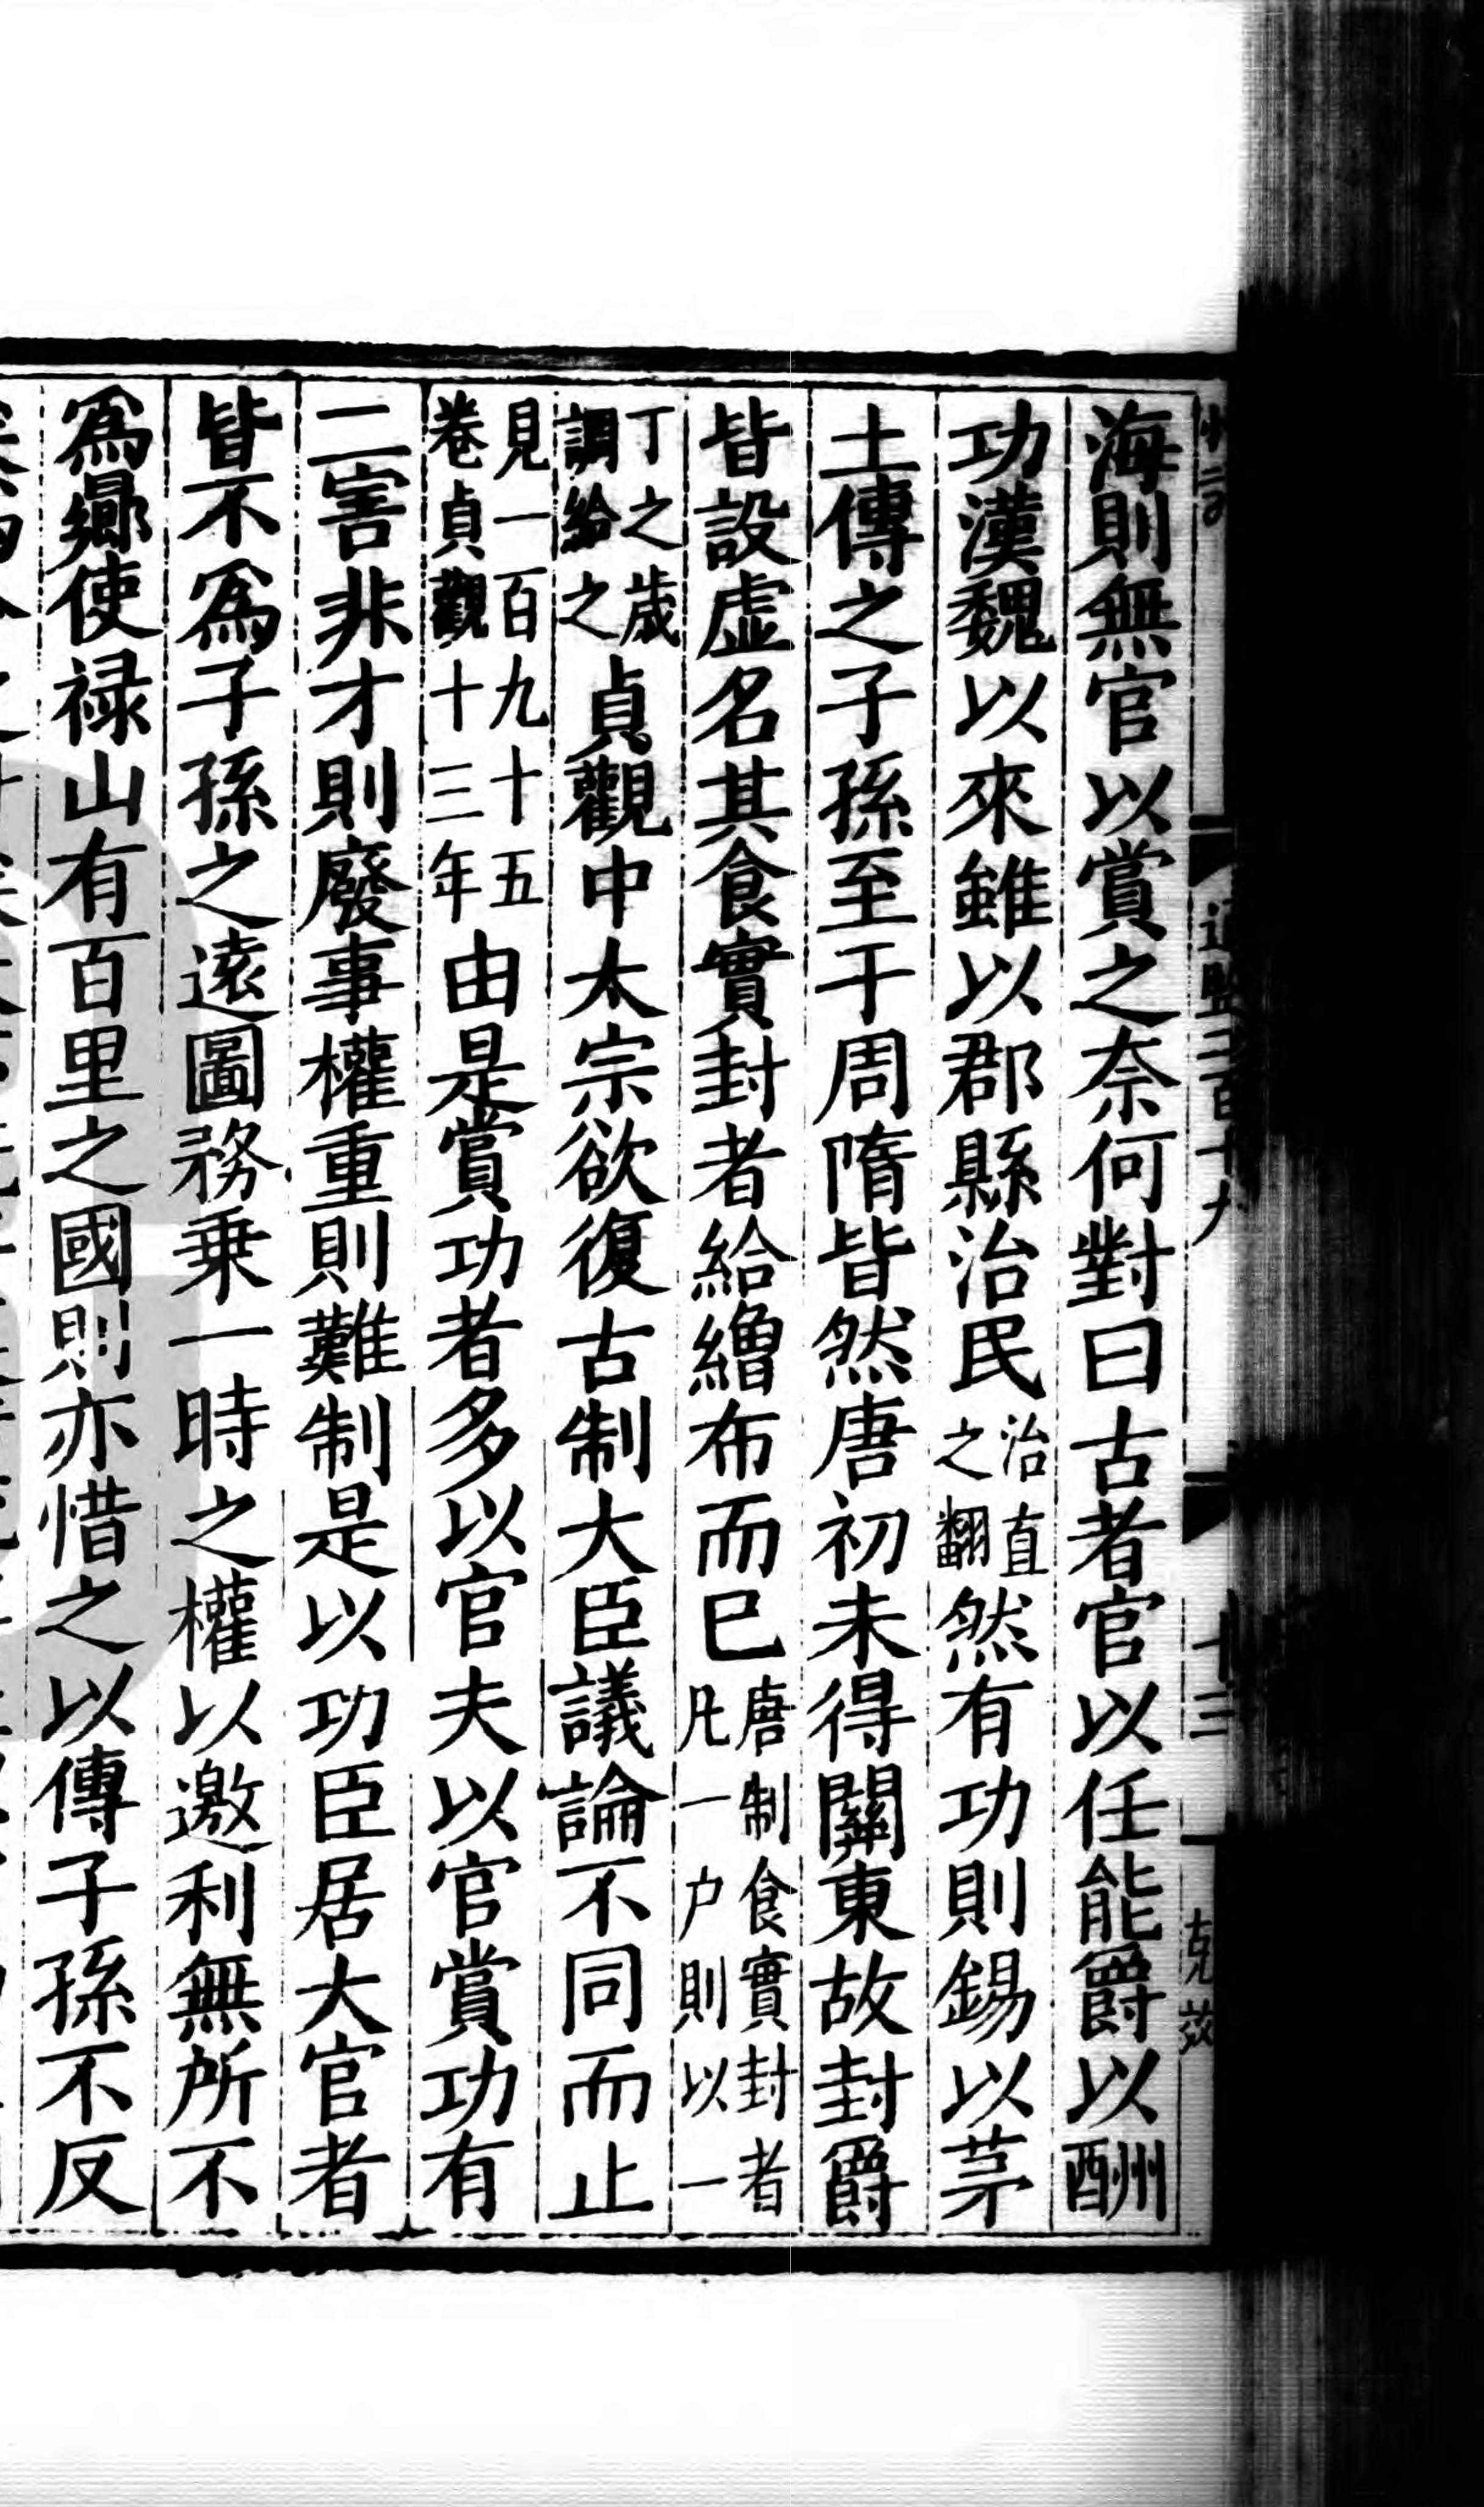 海則無官以賞之奈何對曰古者官以任能爵以酬
功漢魏以來雖以郡縣治民治直之翻然有功則錫以茅
土傳之子孫至于周隋皆然唐初未得關東故封爵
皆設虛名其食實封者給繒布而已唐制食實封者凡一户則以一
丁之歲調給之貞觀中太宗欲復古制大臣議論不同而止
見一百九十五卷貞觀十三年由是賞功者多以官夫以官賞功有
二害非才則廢事權重則難制是以功臣居大官者
皆不爲子孫之遠圖務乗一時之權以邀利無所不
爲曏使禄山有百里之國則亦惜之以傳子孫不反